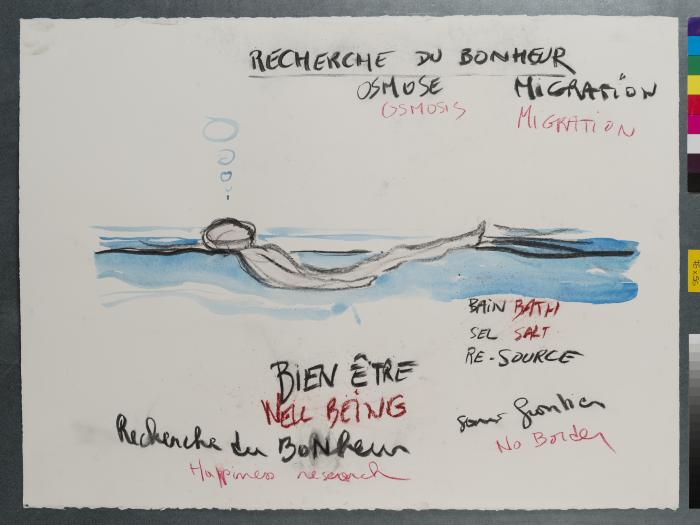 RECHERCHE DU BONHEUR
OSMOSE MIGRATION
OSMOSIS MIGRATION
BAIN BATH
SEL SALT
RE-SOURCE
BIEN ÊTRE
WELL BEING
sans frontier
No Border
Recherche du BONheur
Happiness research